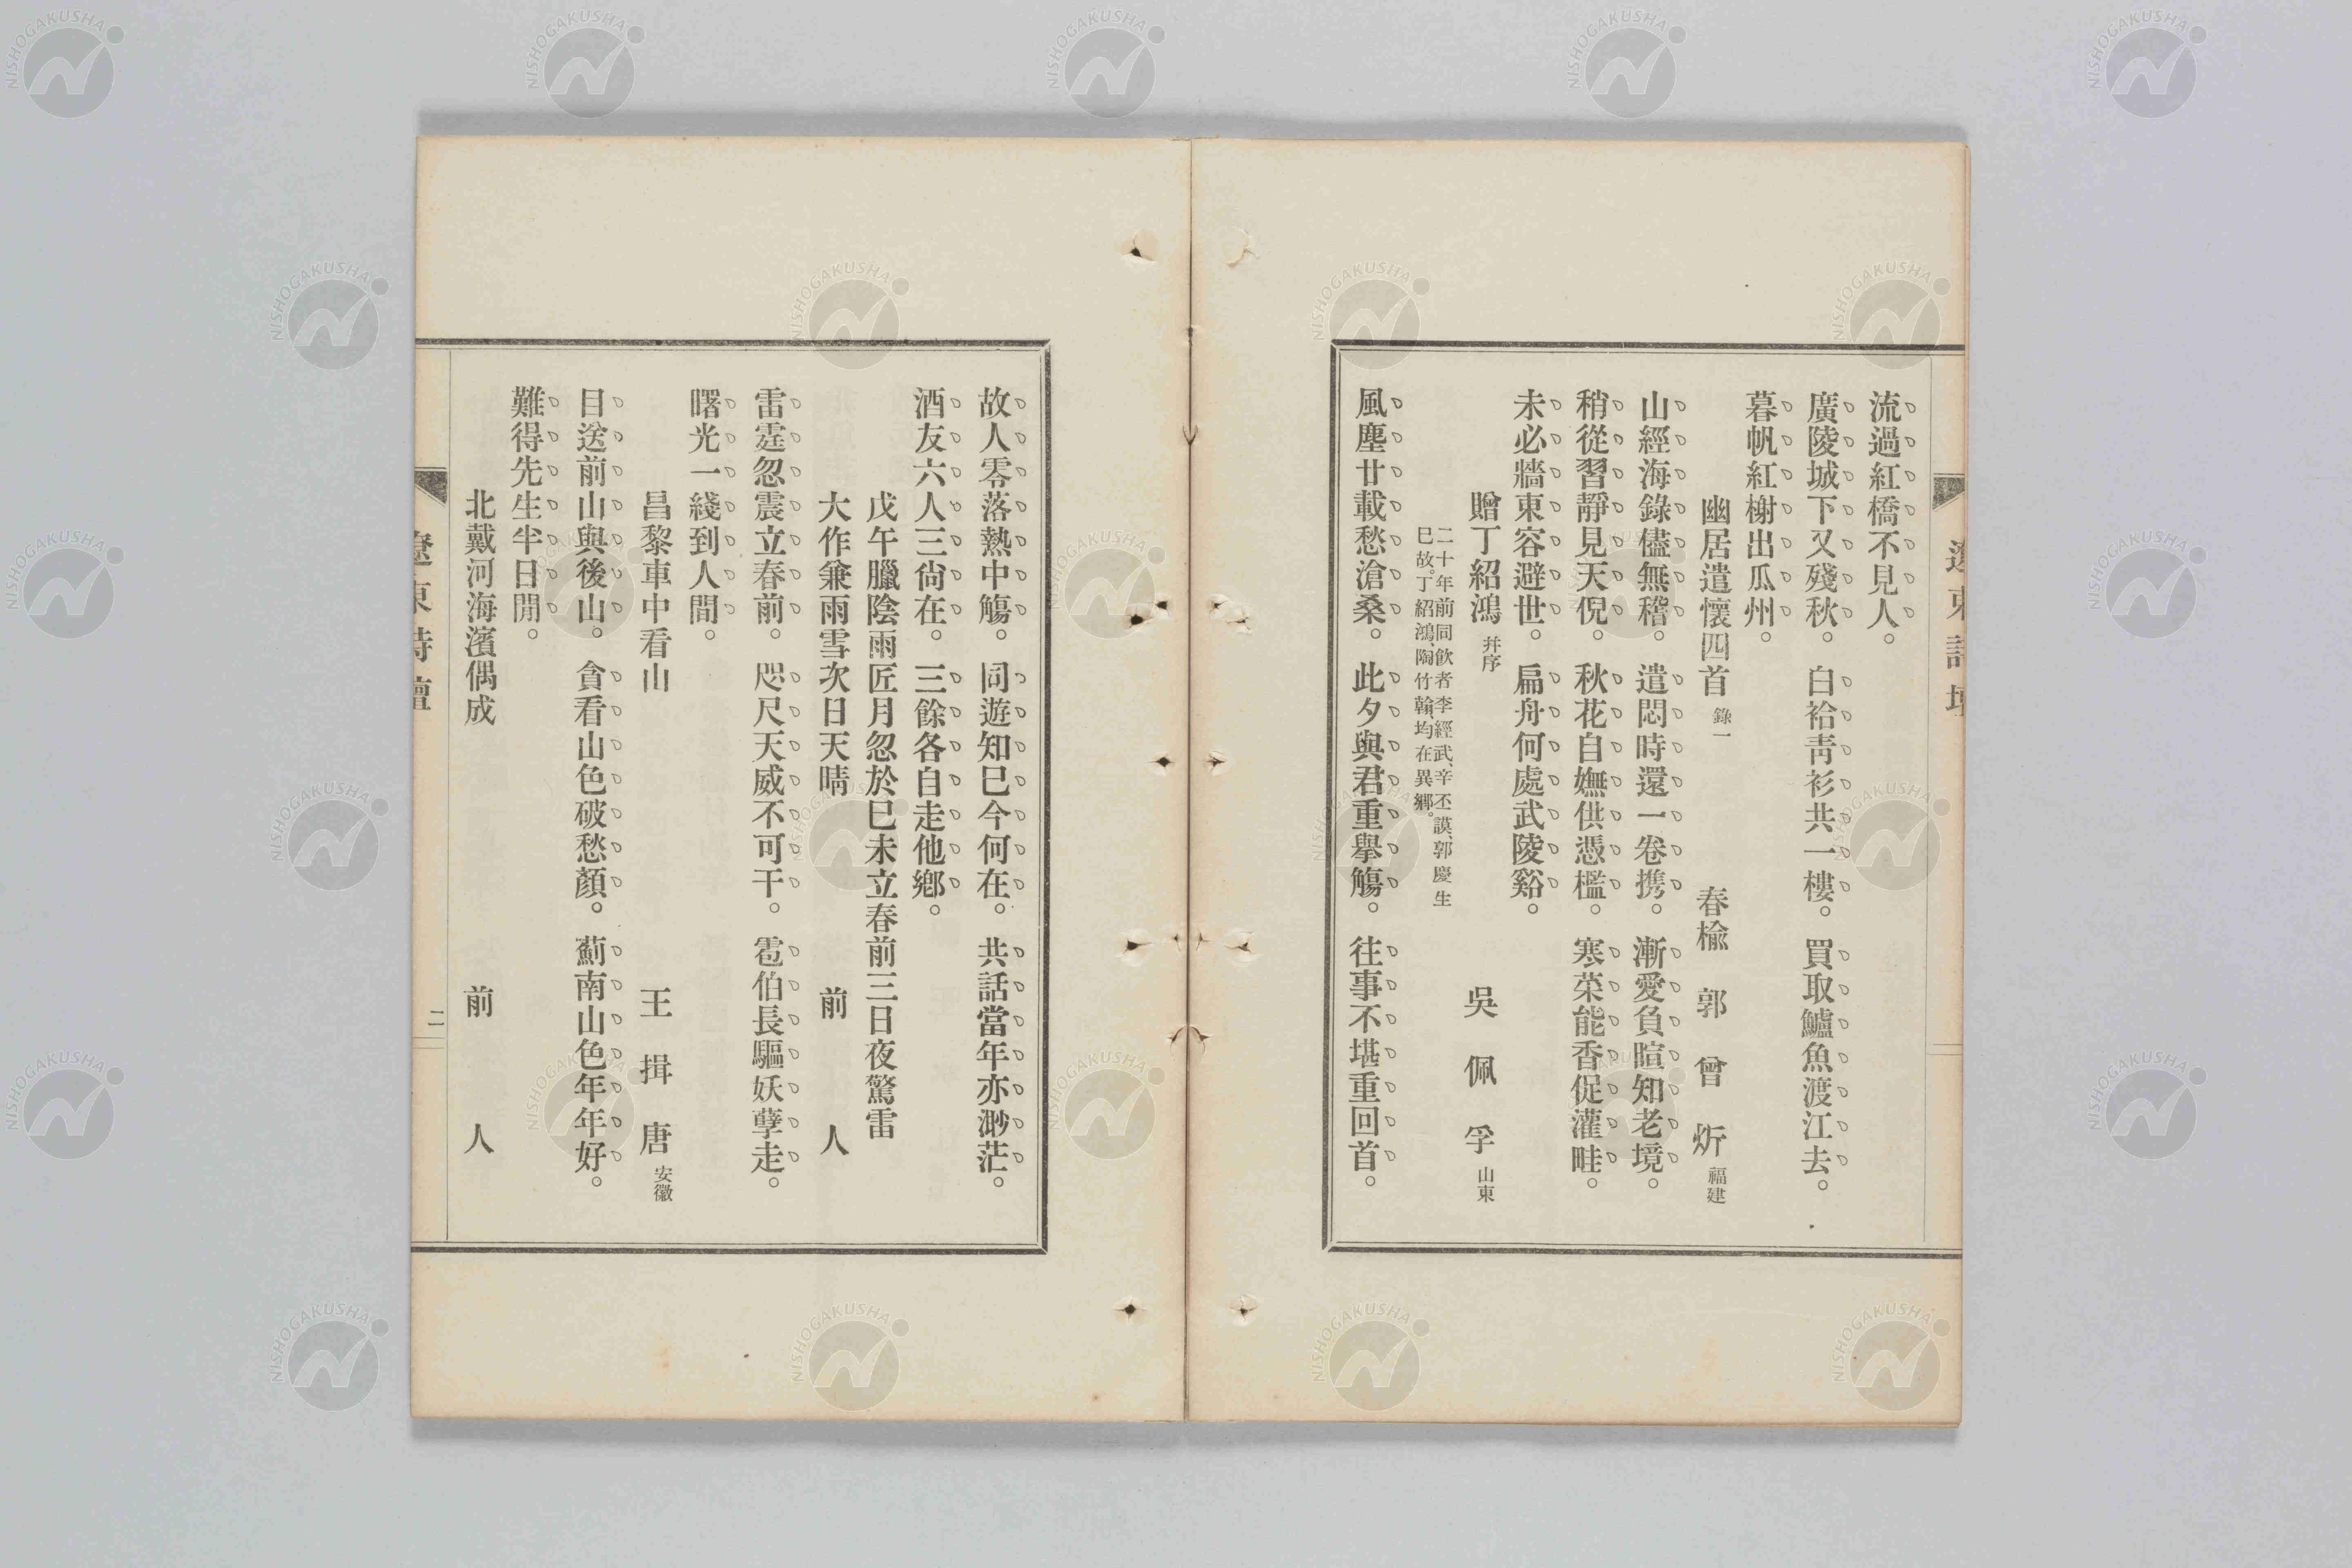 流過紅橋不見人。
廣陵城下又殘秋。白袷靑衫共一樓。買取鱸魚渡江去。
暮帆紅樹出瓜州。
幽居遣懷四首 錄一 春楡 郭曾炘 福建
山經海錄儘無稽。遣悶時還一卷携。漸愛負暄知老境。
稍從習靜見天倪。秋花自嫵供憑檻。寒菜能香促灌畦。
未必牆東容避世。扁舟何處武陵谿。
贈丁紹鴻 幷序 吳佩孚 山東
二十年前同飮者李經武、辛丕謨、郭慶生
巳故。丁紹鴻、陶竹翰、均在異鄕。
風塵廿載愁滄桑。此夕與君重擧觴。往事不堪重回首。
故人零落熱中觴。同遊知已今何在。共話當年亦渺茫。
酒友六人三尙在。三餘各自走他鄕。
戊午臘陰雨匠月忽於巳未立春前三日夜驚雷
大作兼雨雪次日天晴 前人
雷霆忽震立春前。咫尺天威不可干。雹伯長驅妖孽走。
曙光一綫到人間。
昌黎車中看山 王揖唐 安徽
目送前山與後山。貪看山色破愁顏。薊南山色年年好。
難得先生半日閒。
北戴河海濱偶成 前人
遼東詩壇
二
遼東詩壇
NISHOGAKUSHA